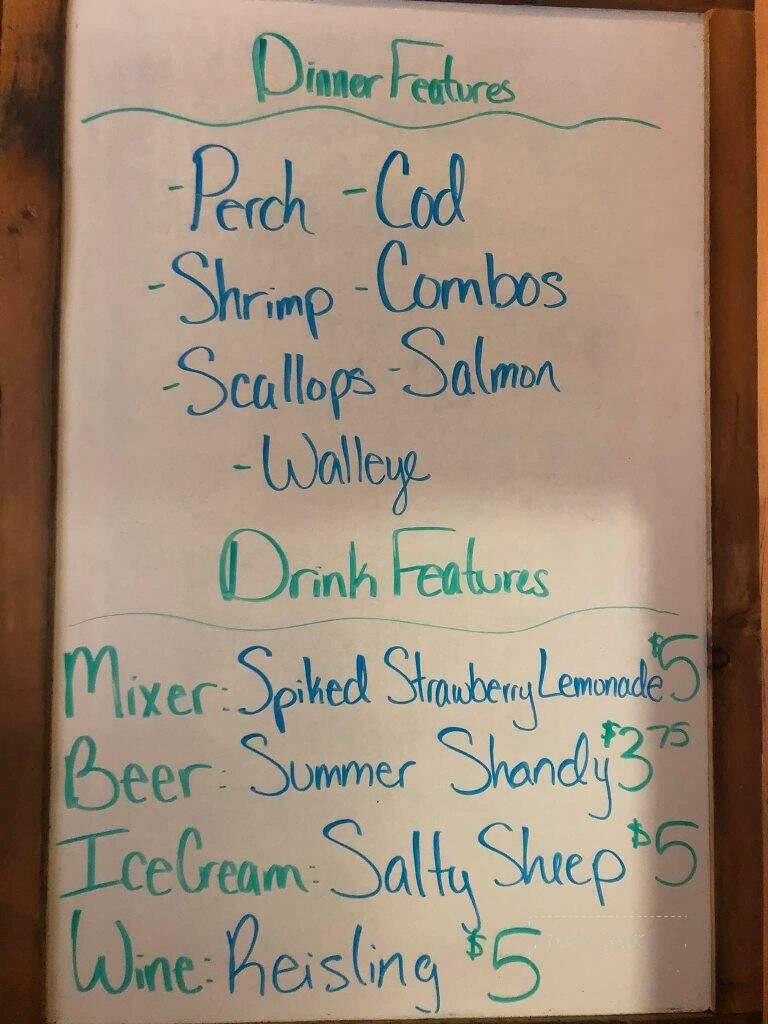 Dinner Features
-Perch -Cod
-Shrimp -Combos
-Scallops -Salmon
-Walleye
Drink Features
Mixer: Spiked Strawberry Lemonade $5
Beer: Summer Shandy $3 75
Ice Cream: Salty Sheep $5
Wine: Reisling $5